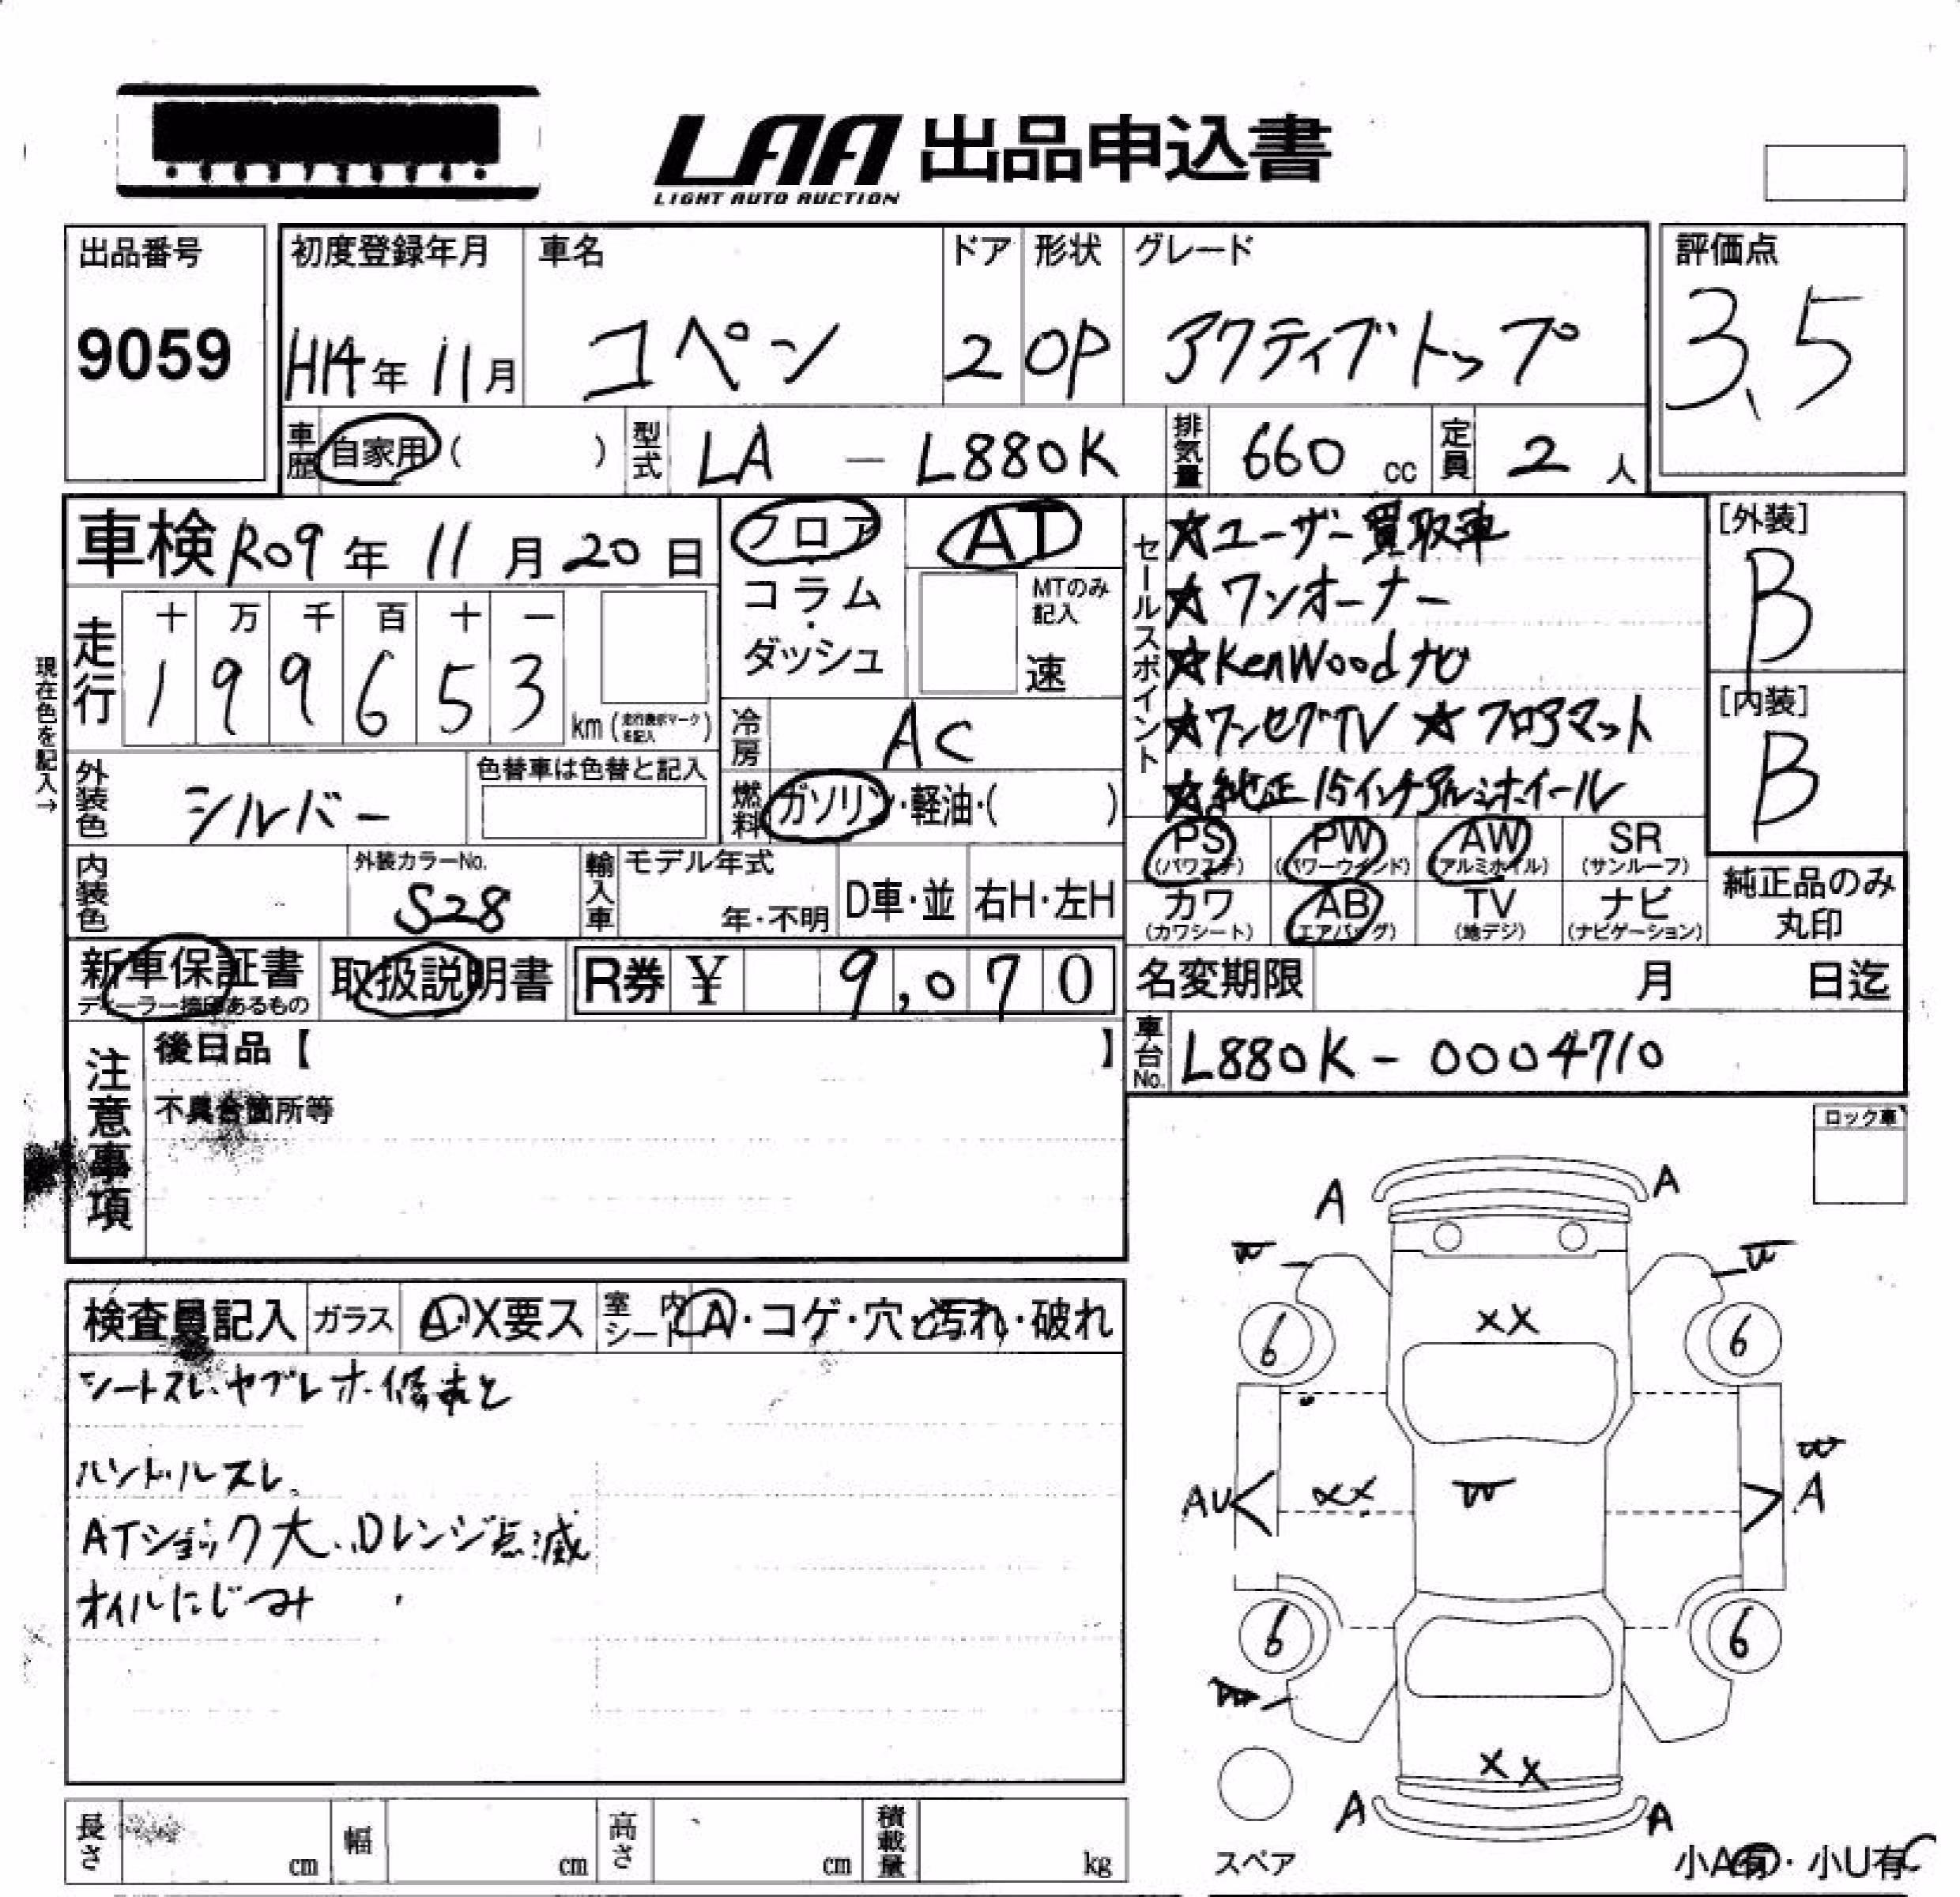 LAA 出品申込書
LIGHT AUTO AUCTION
出品番号
9059
初度登録年月
H14年 11月
車名
コペン
ドア
2
形状
OP
グレード
アクティブトップ
評価点
3.5
車歴 自家用( )
型式 LA - L880K
排気量 660 cc
定員 2 人
車検 R09年 11月 20日
現在色を記入→
走行
十 万 千 百 十 一
1 9 9 6 5 3
km (走行表示マークを記入)
フロア
コラム
・
ダッシュ
AT
MTのみ
記入
速
冷房 AC
燃料 ガソリン・軽油・( )
外装色 シルバー
色替車は色替と記入
内装色
外装カラーNo.
S28
輸入車
モデル年式
年・不明
D車・並
右H・左H
セールスポイント
★ユーザー買取車
★ワンオーナー
★KenWoodナビ
★ワンセグTV ★フロアマット
★純正15インチアルミホイール
[外装]
B
[内装]
B
PS (パワステ)
PW (パワーウインド)
AW (アルミホイル)
SR (サンルーフ)
カワ (カワシート)
AB (エアバッグ)
TV (地デジ)
ナビ (ナビゲーション)
純正品のみ
丸印
新車保証書
ディーラー捺印あるもの
取扱説明書
R券 ¥ 9,070
名変期限 月 日迄
車台No. L880K - 0004710
注意事項
後日品【 】
不具合箇所等
ロック車
検査員記入
ガラス A・X要ス
室内シート A・コゲ・穴・汚れ・破れ
シートスレ、ヤブレ
ハンドルスレ、
ATショック大、Dレンジ点滅
オイルにじみ
A A
XX
6 6
AU XX W A
6 6
XX
A A
スペア
小A有・小U有
長さ cm
幅 cm
高さ cm
積載量 kg